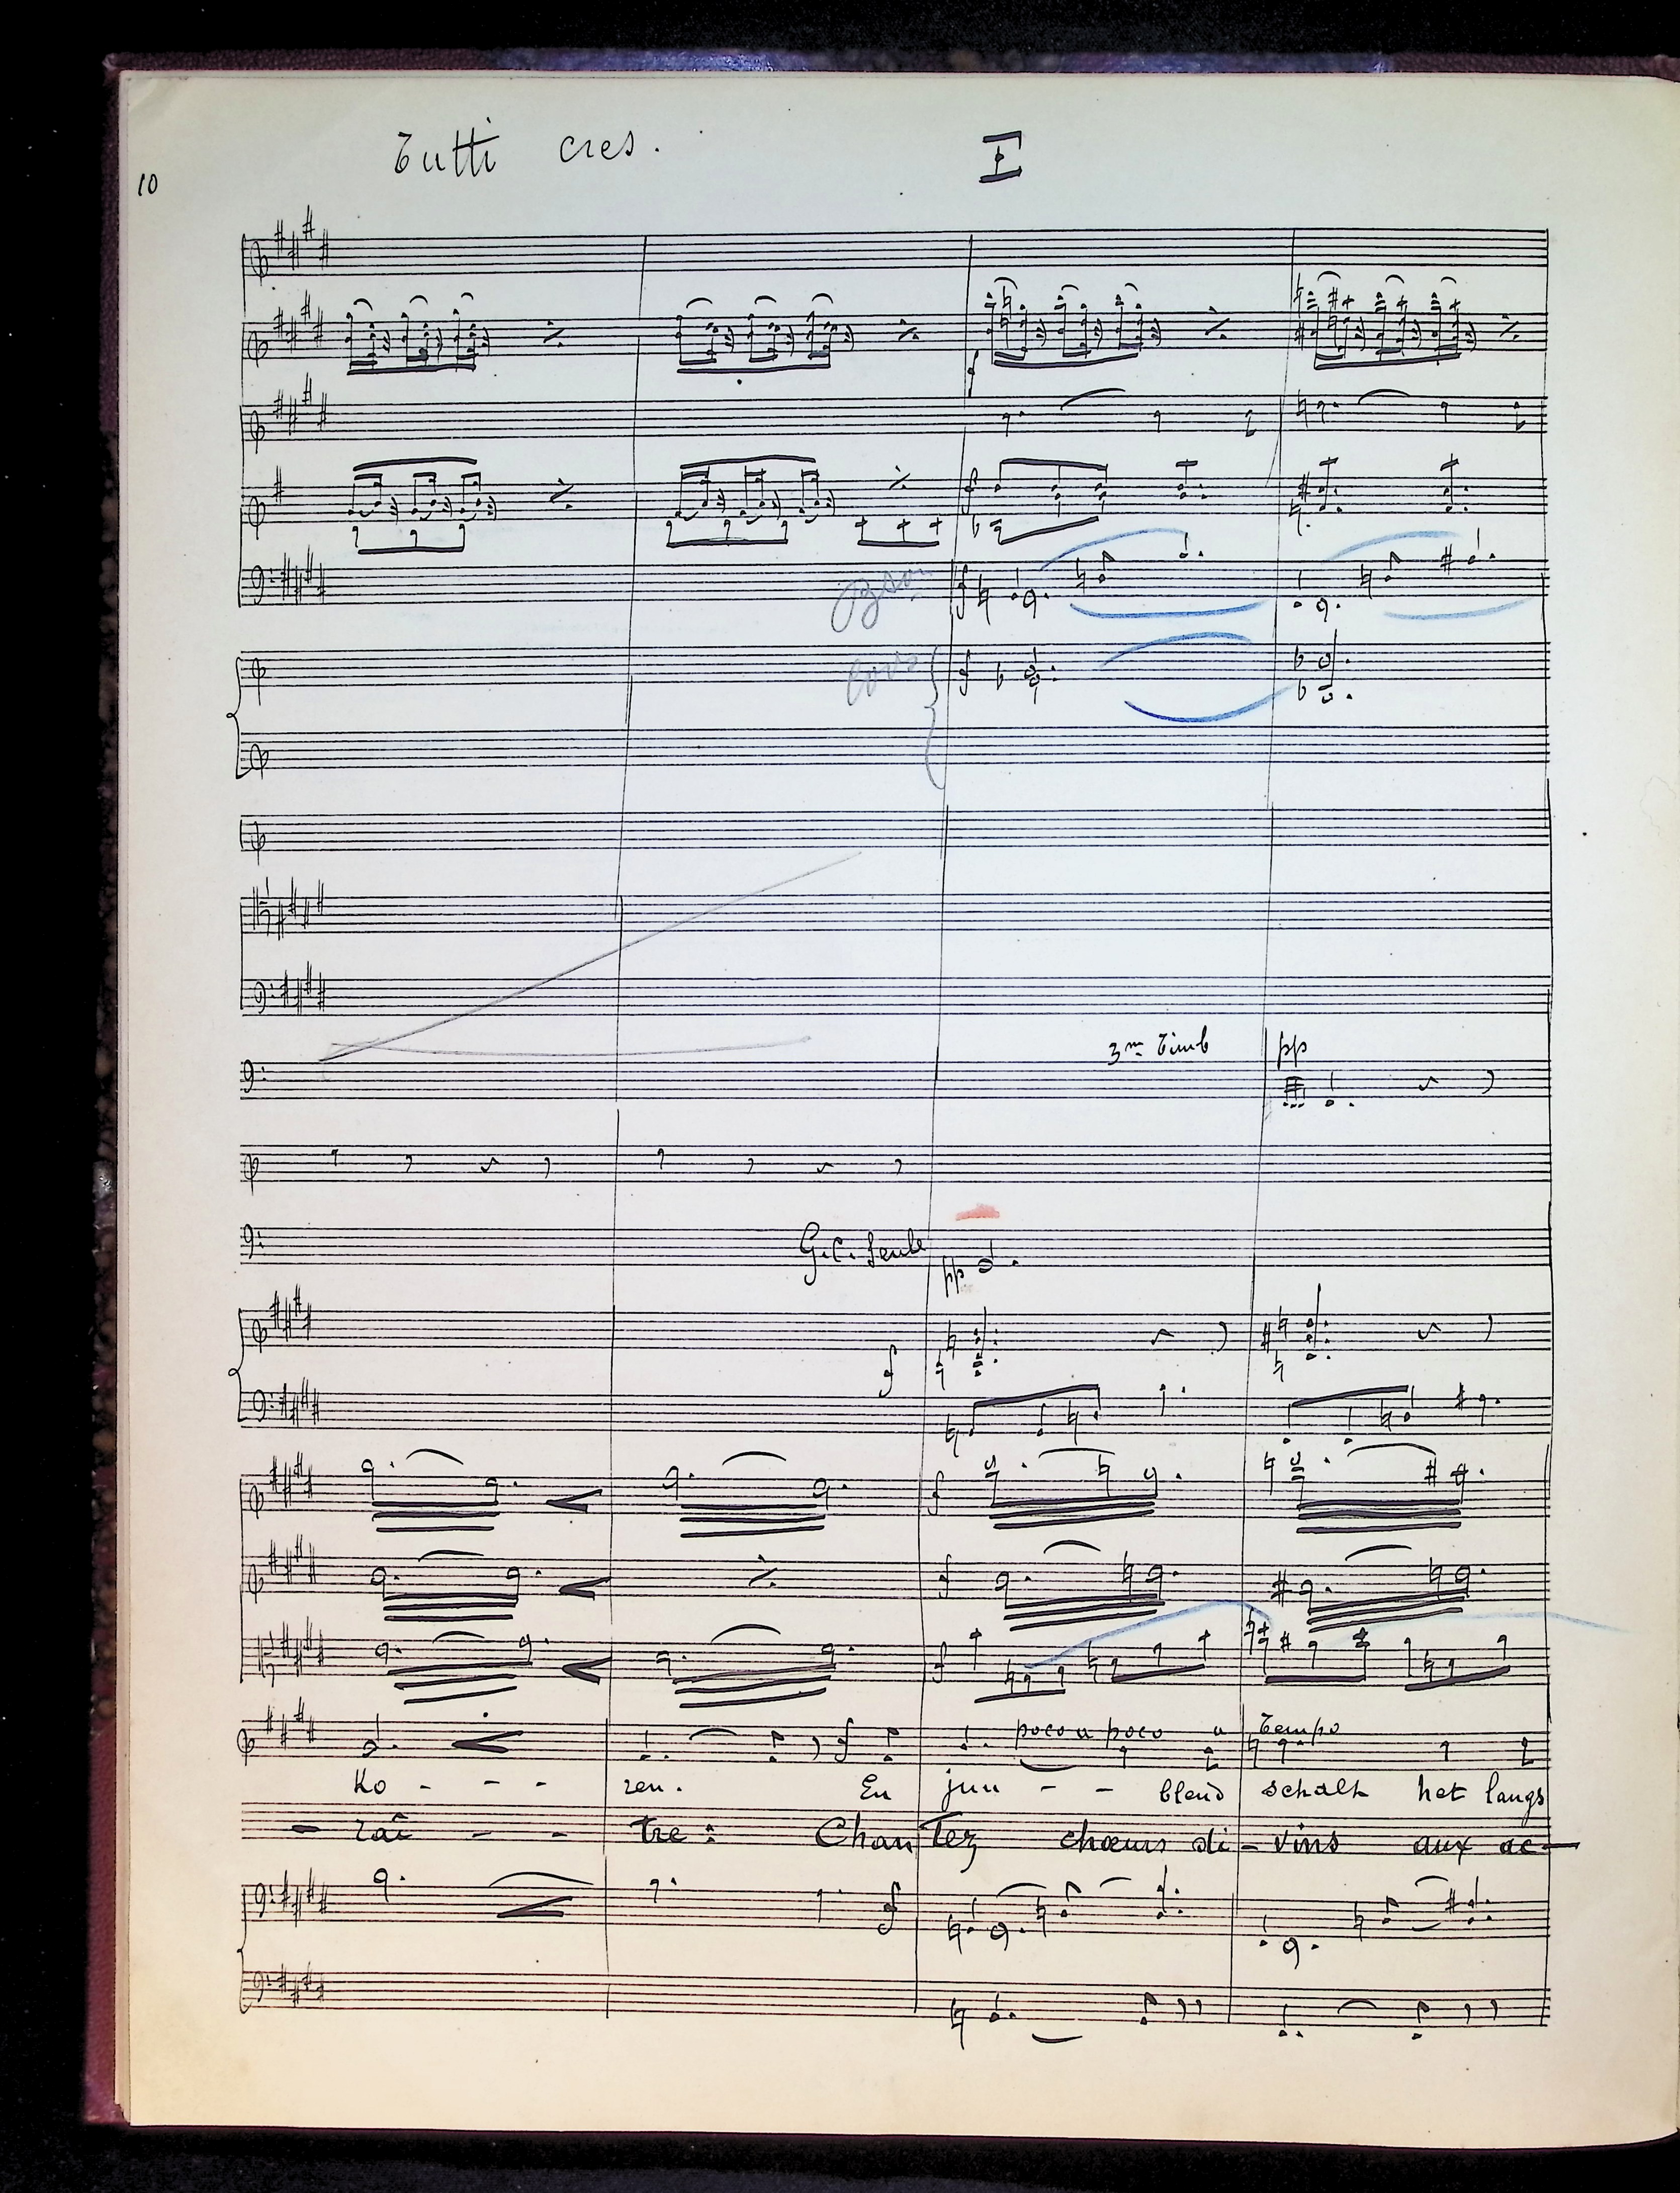 Tutti cres. I
10
f
Bson f
Cors f
3me Timb pp
G.C. Seule pp
f
f
f
f
f poco a poco a Tempo
Ko - - - ren. En juu - - blend schalt het langs
- raî - - tre : Chantez chœurs di - vins aux ac-
f